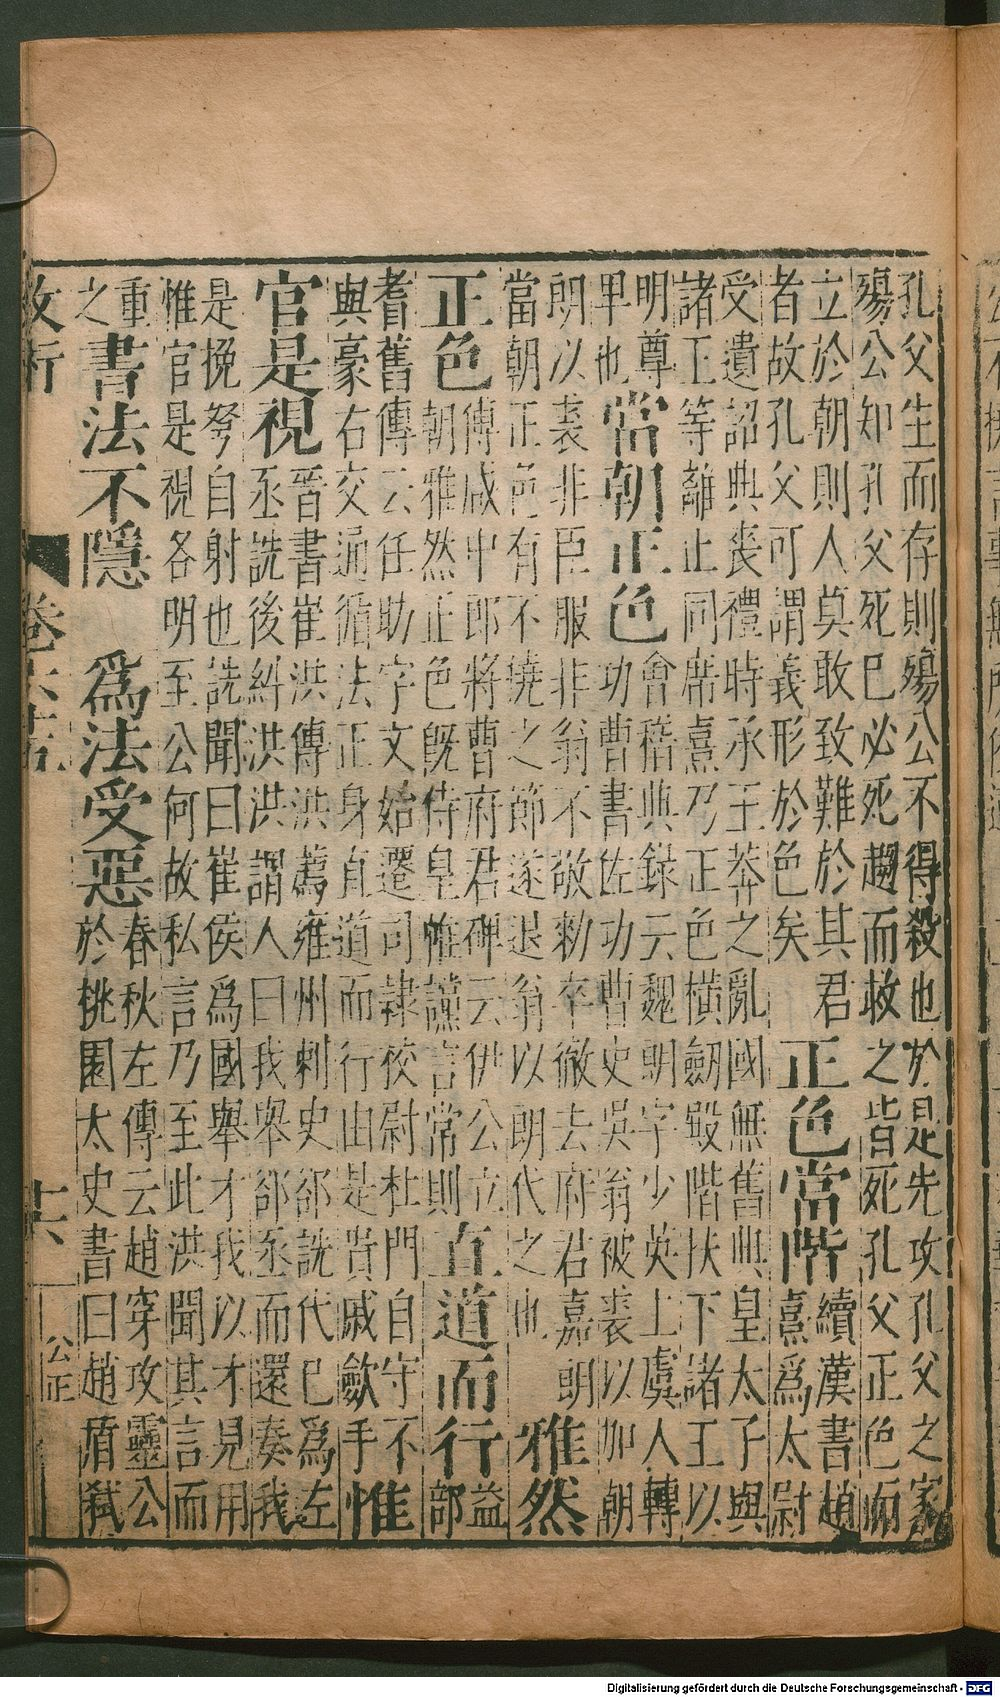 孔父生而存則殤公不得殺也於是先攻孔父之家
殤公知孔父死已必死趨而救之皆死孔父正色而
立於朝則人莫敢致難於其君
者故孔父可謂義形於色矣
正色當階
續漢書趙
熹爲太尉
受遺詔典喪禮時承王莽之亂國無舊典皇太子與
諸王等雜止同席熹乃正色橫劒殿階扶下諸王以
明尊
卑也
當朝正色
會稽典録云魏朗字少英上虞人轉
功曹書佐功曹史吳翁被裘以加朝
朗以裘非臣服非翁不敬勑卒徹去府君嘉朗
當朝正色有不撓之節遂退翁以朗代之也
雅然
正色
傳咸中郎將曹府君碑云伊公立
朝雅然正色旣侍皇帷讜言常則
直道而行
益
部
耆舊傳云任助字文始遷司隷校尉杜門自守不
與豪右交通循法正身直道而行由是貴戚歛手
惟
官是視
晉書崔洪傳洪薦雍州刺史郤詵代已爲左
丞詵後糾洪洪謂人曰我舉郤丞而還奏我
是挽弩自射也詵聞曰崔侯爲國舉才我以才見用
惟官是視各明至公何故私言乃至此洪聞其言而
重
之
書法不隱
爲法受惡
春秋左傳云趙穿攻靈公
於桃園太史書曰趙盾弑
十六
公正
Digitalisierung gefördert durch die Deutsche Forschungsgemeinschaft - DFG